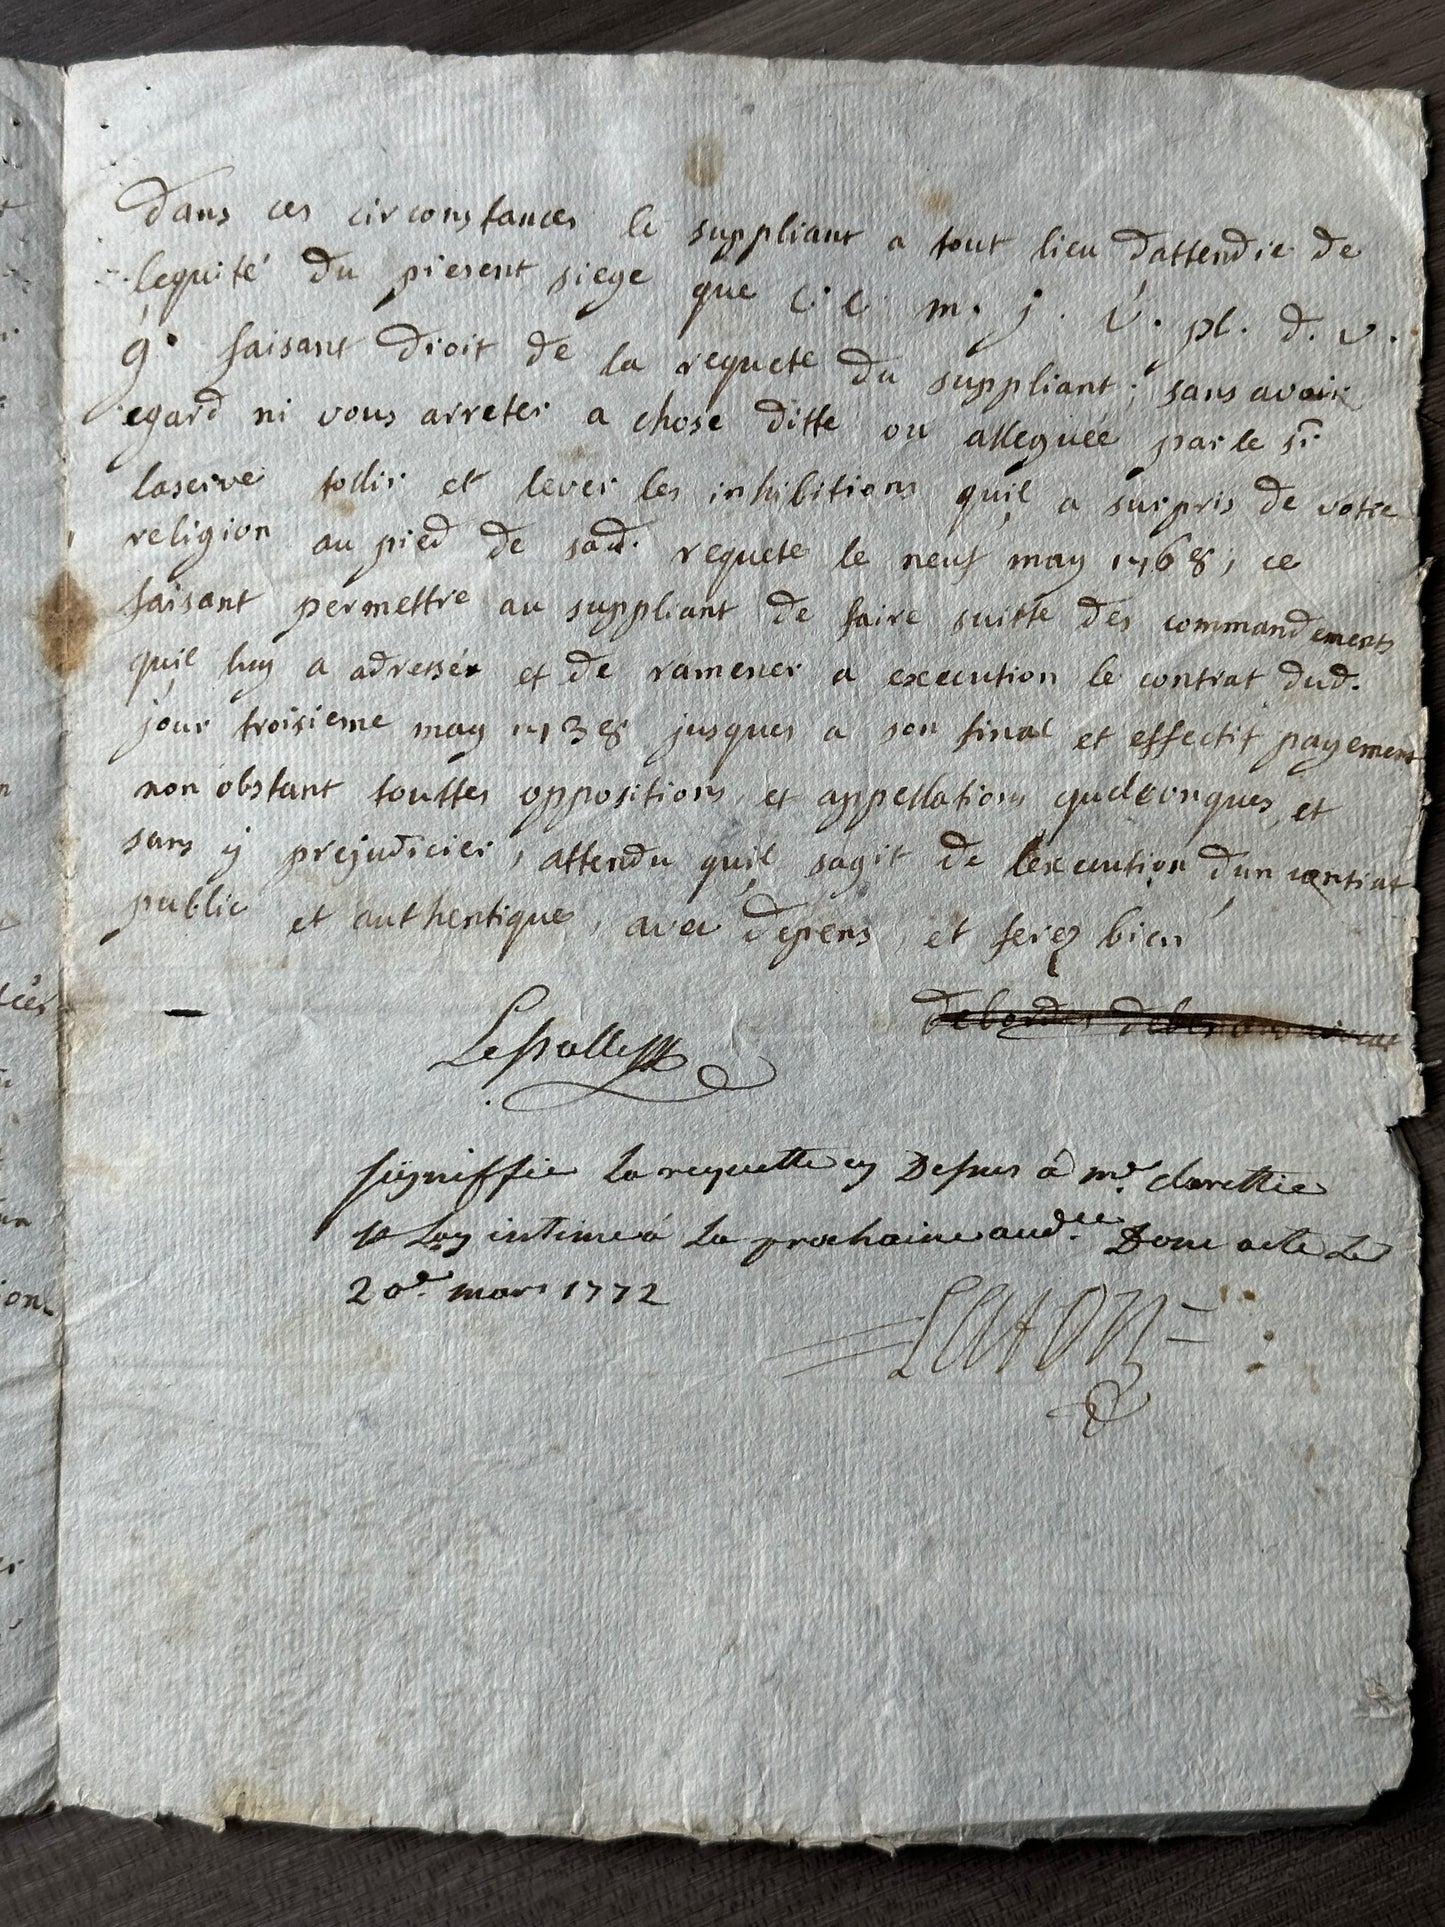 Dans ces circonstances le suppliant a tout lieu dattendre de
lequité du present siege que c. c m. j. v. pl. d. v.
g. faisant droit de la requete du suppliant, sans avoir
egard ni vous arreter a chose ditte ou alleguée par le sr.
laserve tollir et lever les inhibitions quil a surpris de votre
religion au pied de sad. requete le neuf may 1768, ce
faisant permettre au suppliant de faire suitte des commandements
quil luy a adressé et de ramener a execution le contrat dud.
jour troisieme may 1738 jusques a son final et effectif payement
non obstant touttes oppositions et appellations quelconques, et
sans y prejudicier, attendu quil sagit de lexecution dun contrat
public et authentique, avec depens, et ferez bien
signiffié la requette cy Dessus a me. clarettie
luy intimé á la prochaine audce. Dont acte Le
20e. mars 1772